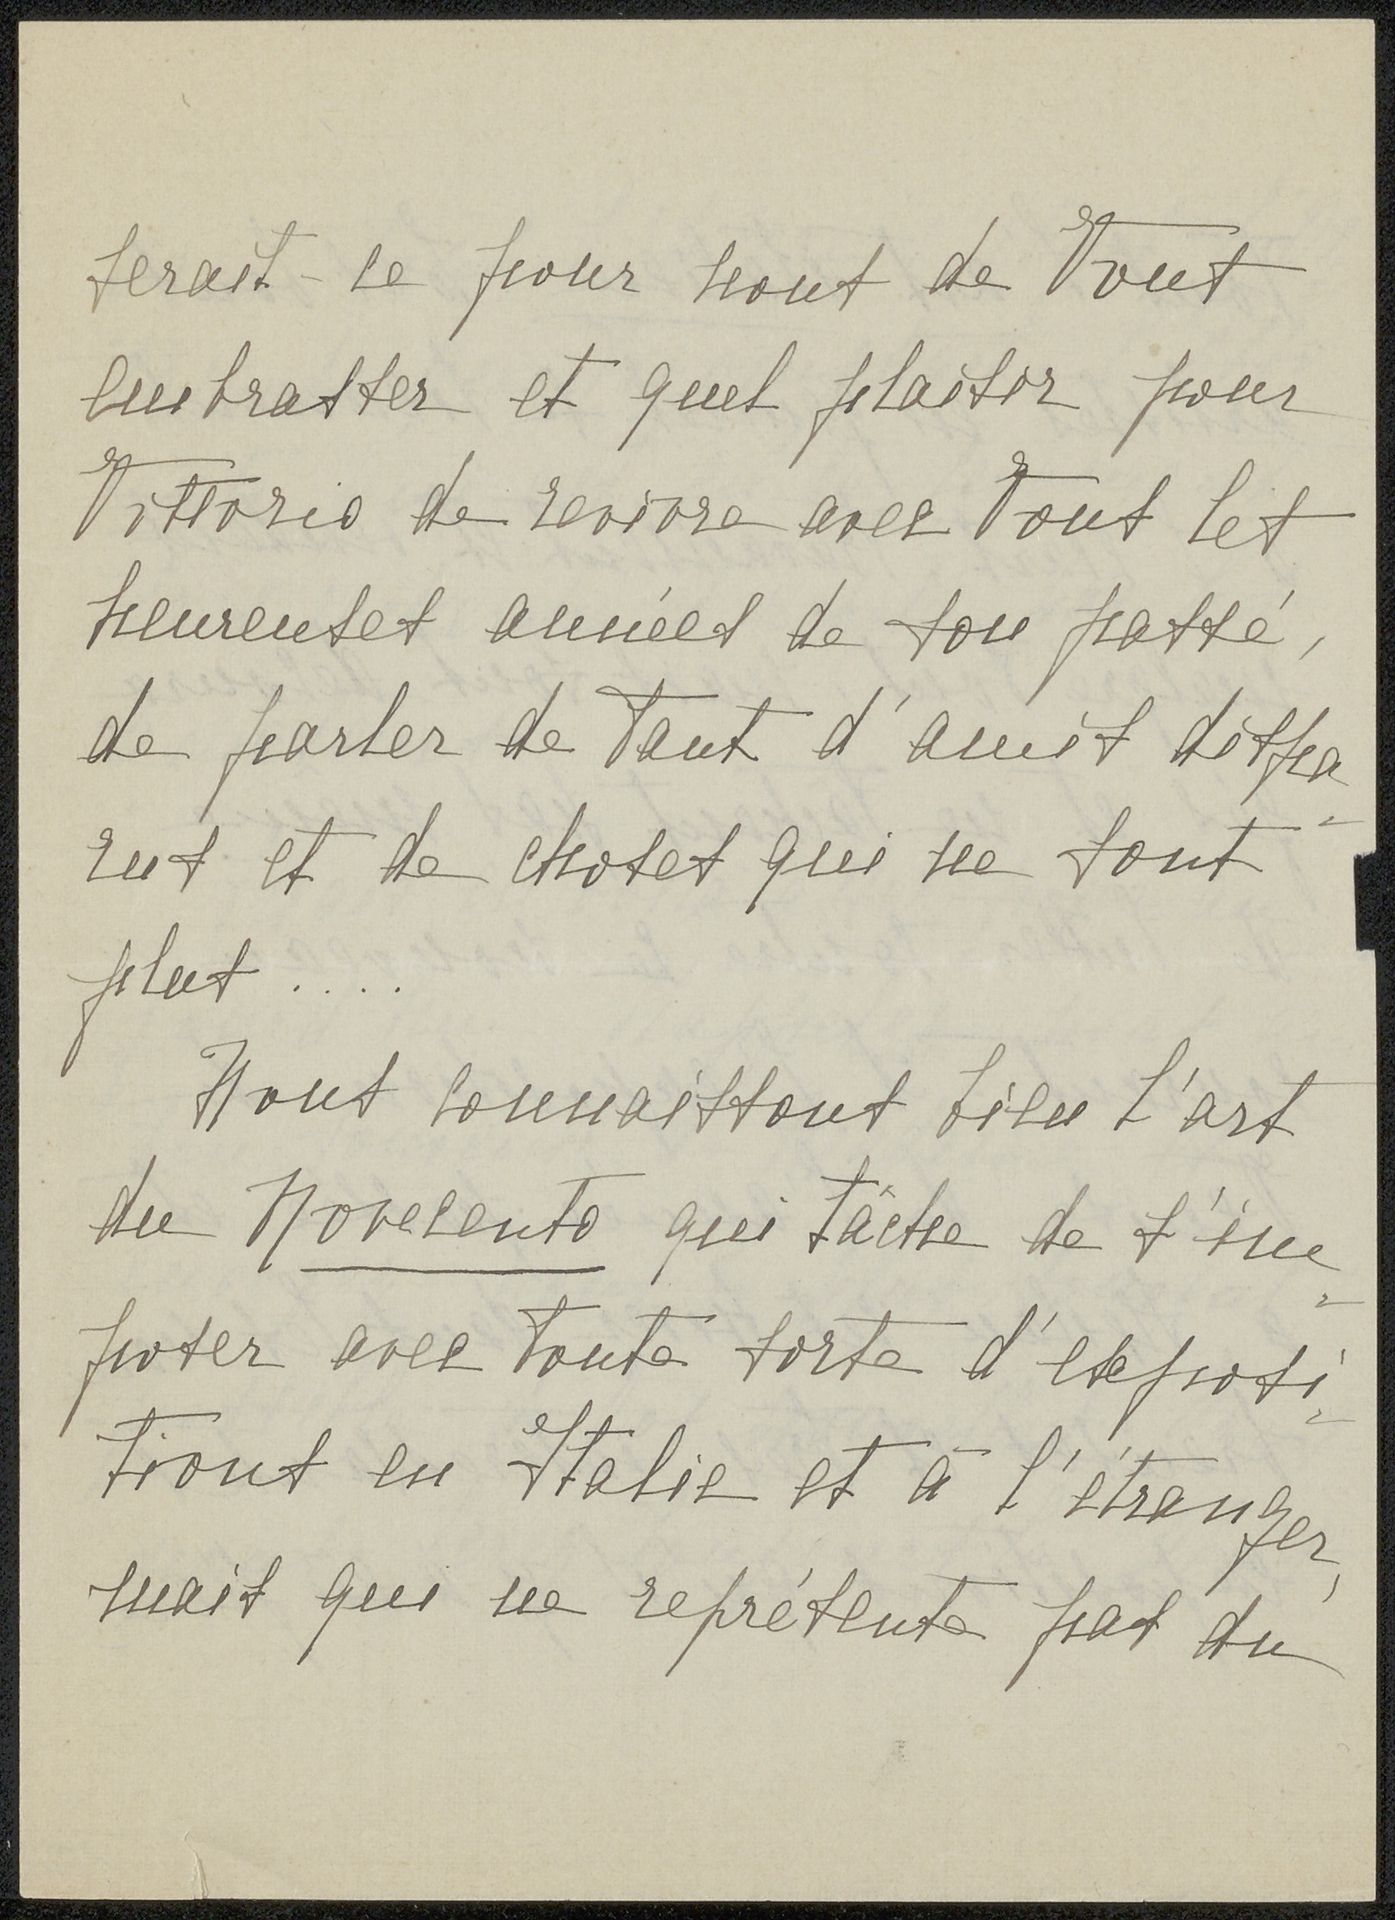 serait-ce pour nous de Vous
embrasser et quel plaisir pour
Vittorio de revivre avec Vous les
heureuses années de son passé,
de parler de tant d'amis dispa-
rus et de choses qui ne sont
plus ....
Nous connaissons bien l'art
du Novecento qui tâche de s'im-
poser avec toute sorte d'exposi-
tions en Italie et à l'étranger,
mais qui ne représente pas du